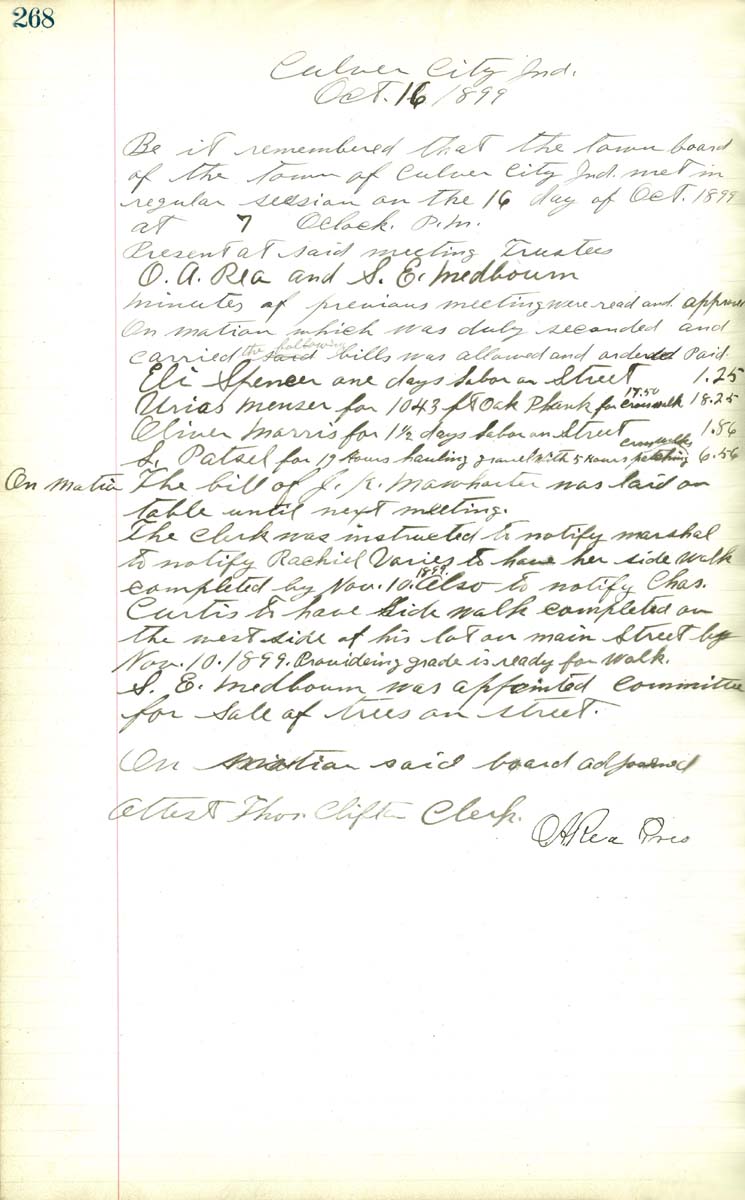 268
Culver City Ind.
Oct. 16 1899
Be it remembered that the town board
of the town of Culver City Ind. met in
regular session on the 16 day of Oct. 1899
at 7 Oclock. P.M.
Present at said meeting Trustees
O. A. Rea and S. E. Medbourn
minutes of previous meeting were read and approved
On motion which was duly seconded and
carried the following said bills was allowed and ordered Paid.
Eli Spencer one days Labor on Street 1.25
Urias Menser for 1043 ft Oak Plank for crosswalk 17.50 18.25
Oliver Morris for 1½ days Labor on Street 1.86
S. Patsel for 19 Hours hauling gravel with 5 Hours crosswalks 6.56
On motion The bill of J. K. Mawhorter was laid on
table until next meeting.
The clerk was instructed to notify marshal
to notify Rachiel Vories to have her side walk
completed by Nov. 10. 1899. Also to notify Chas.
Curtis to have Side walk completed on
the west side of his lot on main Street by
Nov. 10. 1899. Provideing grade is ready for walk.
S. E. Medbourn was appointed committee
for Sale of trees on street.
On motion said board adjourned
Attest Thos. Clifton Clerk.
O A Rea Pres